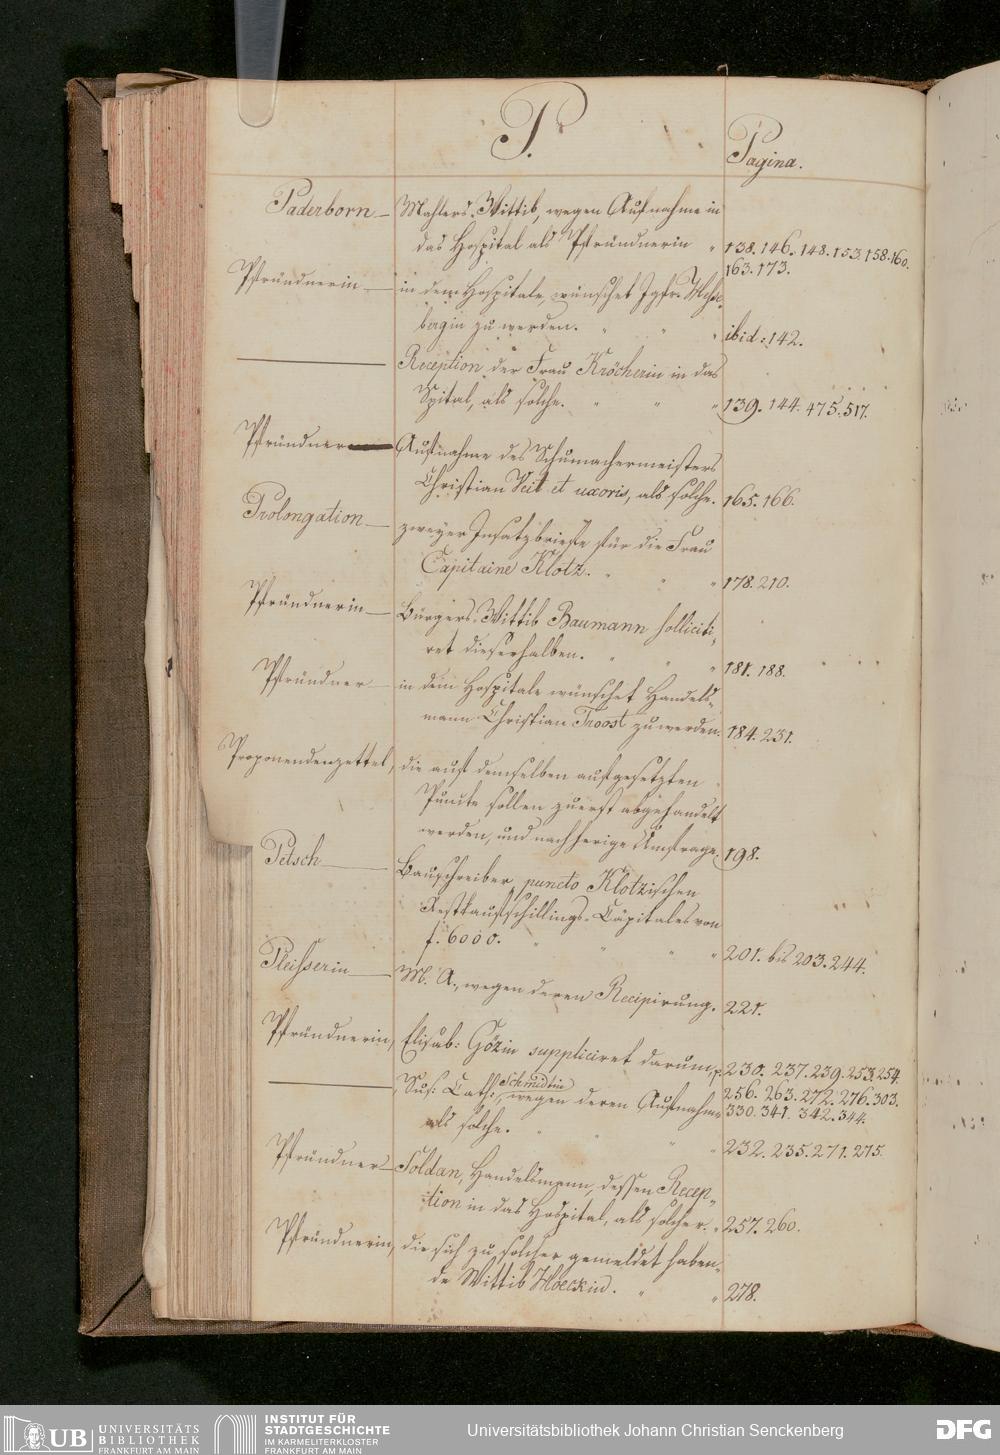 P.
Pagina.
Paderborn — Mahlers-Wittib, wegen Aufnahme in
das Hospital als Pfründnerin " 138. 146. 148. 153. 158. 160.
163. 173.
Pfründnerin — in dem Hospitale, wünschet Jgfr.
bergin zu werden. " " " ibid: 142.
— Reception der Frau Kröcherin in das
Spital, als solche. " " " 139. 144. 475. 517.
Pfründner — Aufnahme des Schumachermeisters
Christian Veit et uxoris, als solche. 165. 166.
Prolongation — zweyer Insatzbriefe für die Frau
Capitaine Klotz. " " " 178. 210.
Pfründnerin — Bürgers-Wittib Baumann solliciti-
ret dieserhalben. " " " 181. 188.
Pfründner — in dem Hospitale wünschet Handels-
mann Christian Troost zu werden. 184. 231.
Proponendenzettel, die auf demselben aufgesetzten
Puncte sollen zuerst abgehandelt
werden, und nachherige Umfrage. 198.
Petsch — Bauschreiber, puncto Klotzischen
Restkaufschillings-Capitales von
f. 6000. " " " 201. bis 203. 244.
Pleisserin — M. A., wegen deren Recipirung. 221.
Pfründnerin, Elisab: Gözin suppliciret darum, 230. 237. 239. 253. 254.
256. 263. 272. 276. 303.
330. 341. 342. 344.
— Sus: Cath: Schmidtin, wegen deren Aufnahme
als solche. " " " 232. 235. 271. 275.
Pfründner — Soldan, Handelsmann, dessen Recep-
tion in das Hospital, als solcher. " 257. 260.
Pfründnerin, die sich zu solcher gemeldet haben-
de Wittib Hoeckin. " " 278.
UB UNIVERSITÄTS
BIBLIOTHEK
FRANKFURT AM MAIN
INSTITUT FÜR
STADTGESCHICHTE
IM KARMELITERKLOSTER
FRANKFURT AM MAIN
Universitätsbibliothek Johann Christian Senckenberg
DFG